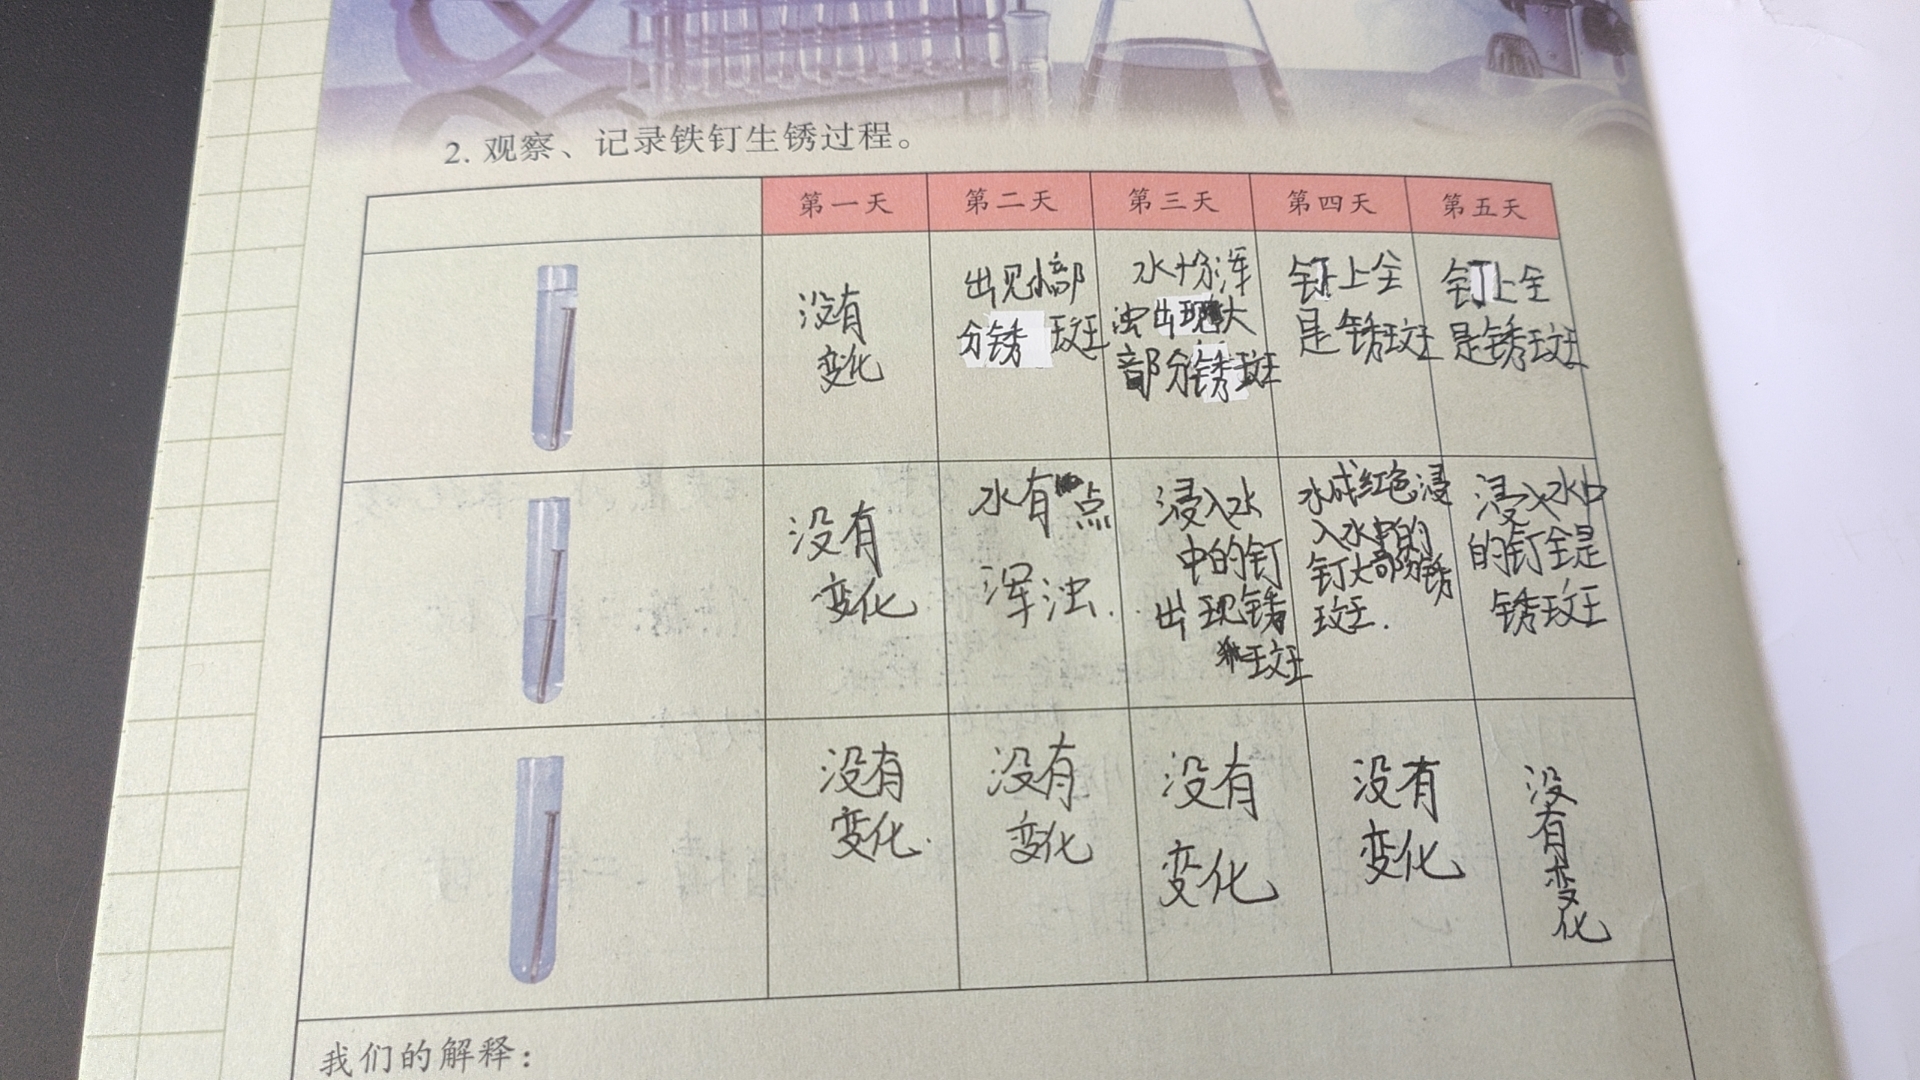 2. 观察、记录铁钉生锈过程。
第一天
第二天
第三天
第四天
第五天
没有
变化
出见小部
分锈斑
水份浑
浊出现大
部分锈斑
钉上全
是锈斑
钉上全
是锈斑
没有
变化
水有点
浑浊.
浸入水
中的钉
出现锈
斑
水成红色浸
入水中的
钉大部分锈
斑.
浸入水中
的钉全是
锈斑
没有
变化.
没有
变化
没有
变化
没有
变化
没
有
变
化
我们的解释: